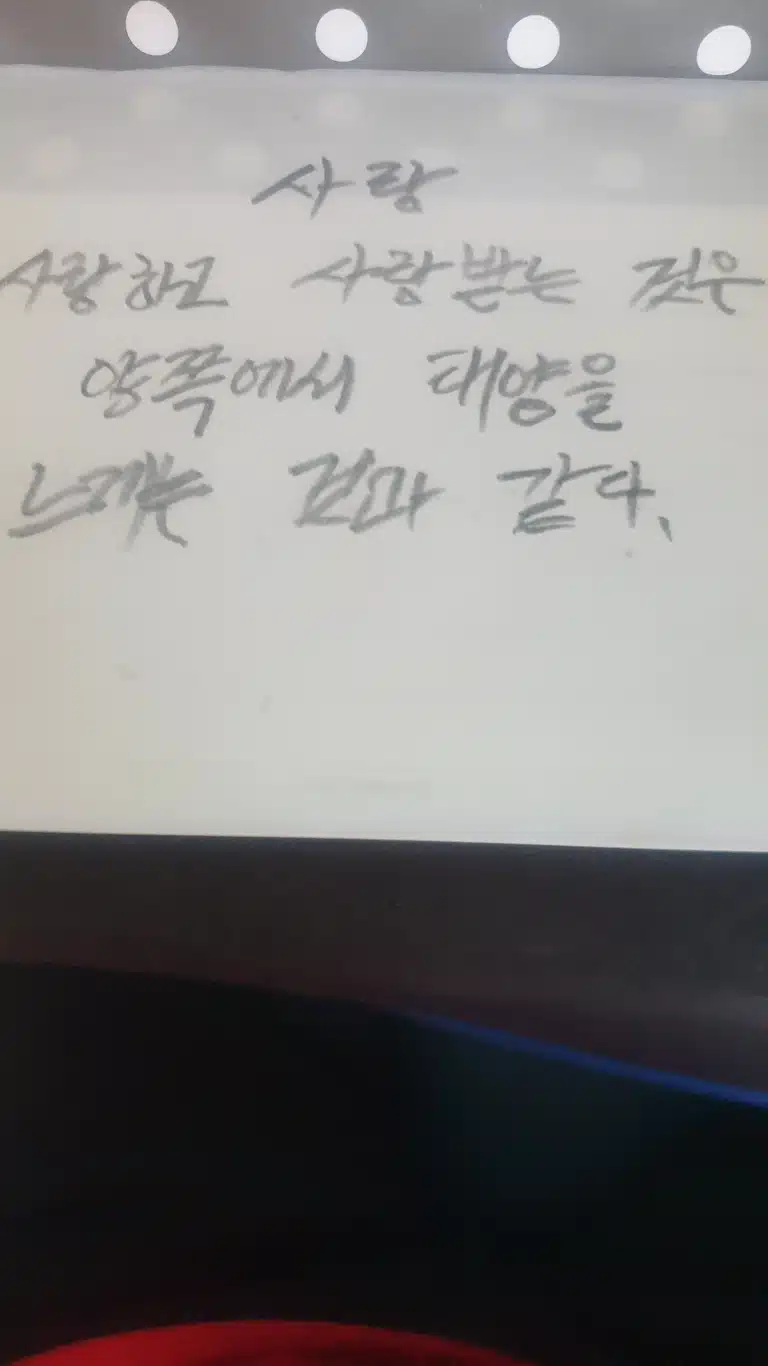 사랑
사랑하고 사랑받는 것은
양쪽에서 태양을
느끼는 것과 같다.